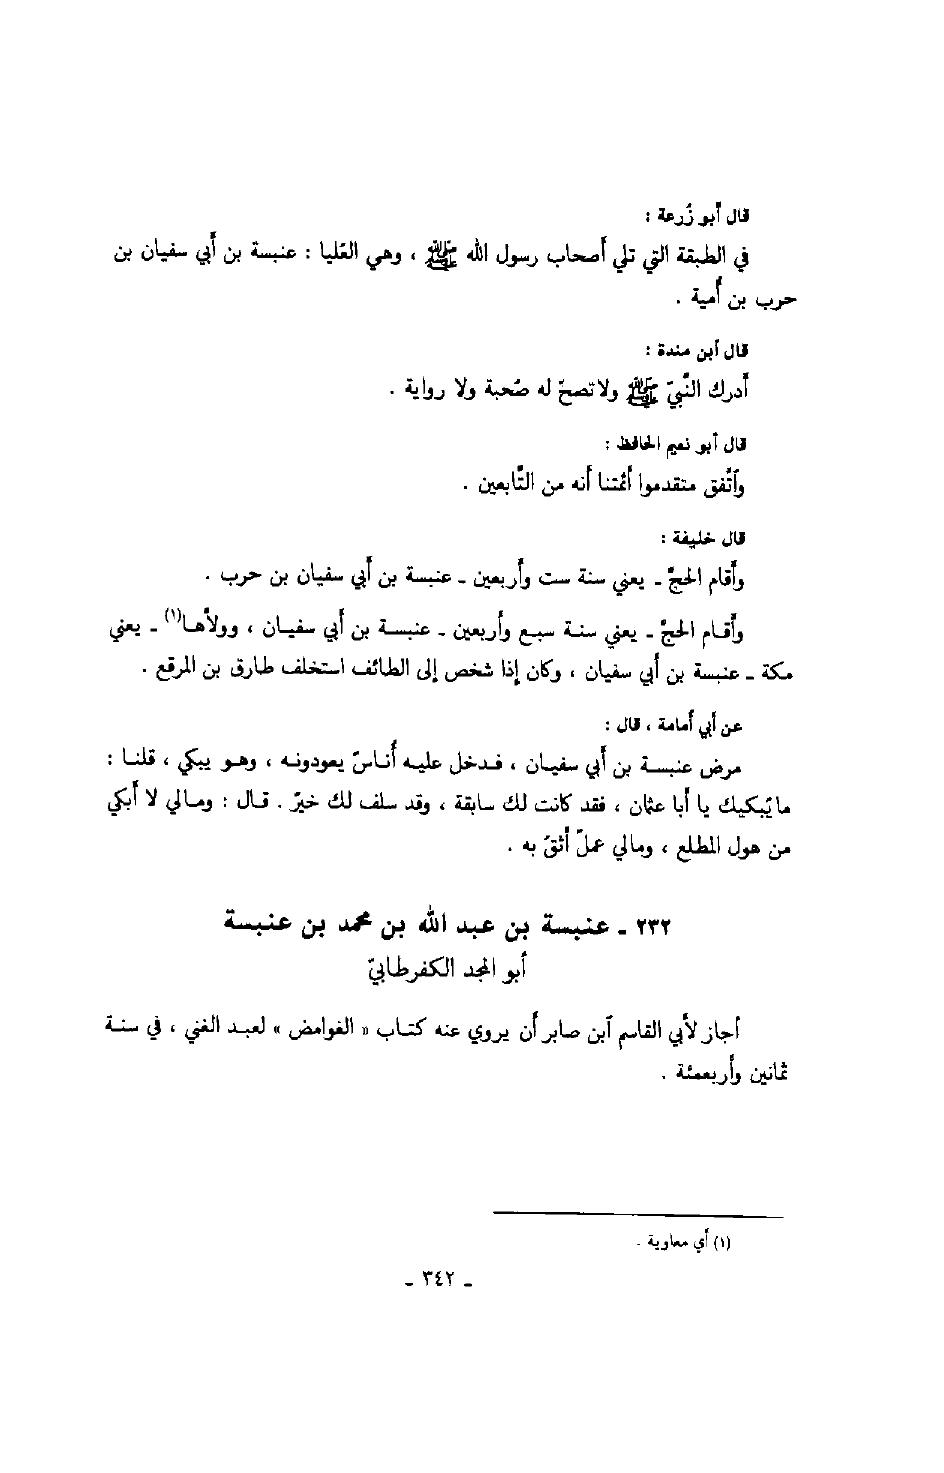 قال أبو زُرعة :
في الطبقة التي تلي أصحاب رسول الله ﷺ ، وهي العُليا : عنبسة بن أبي سفيان بن
حرب بن أمية .
قال آبن مندة :
أدرك النَّبيّ ﷺ ولا تصحّ له صُحبة ولا رواية .
قال أبو نعيم الحافظ :
وآتّفق متقدموا أئمتنا أنه من التَّابعين .
قال خليفة :
وأقام الحجَّ ـ يعني سنة ست وأربعين ـ عنبسة بن أبي سفيان بن حرب .
وأقام الحجَّ ـ يعني سنة سبع وأربعين ـ عنبسة بن أبي سفيان ، وولاَّها(١) ـ يعني
مكة ـ عنبسة بن أبي سفيان ، وكان إذا شخص إلى الطائف استخلف طارق بن المرقع .
عن أبي أمامة ، قال :
مرض عنبسة بن أبي سفيان ، فدخل عليه أُناسٌ يعودونه ، وهو يبكي ، قلنا :
ما يُبكيك يا أبا عثمان ، فقد كانت لك سابقة ، وقد سلف لك خيرٌ . قال : ومالي لا أبكي
من هول المطلع ، ومالي عملٌ أثقُ به .
٢٣٢ ـ عنبسة بن عبد الله بن محمد بن عنبسة
أبو المجد الكفرطابيّ
أجاز لأبي القاسم آبن صابر أن يروي عنه كتاب « الغوامض » لعبد الغني ، في سنة
ثمانين وأربعمئة .
(١) أي معاوية .
ـ ٣٤٢ ـ